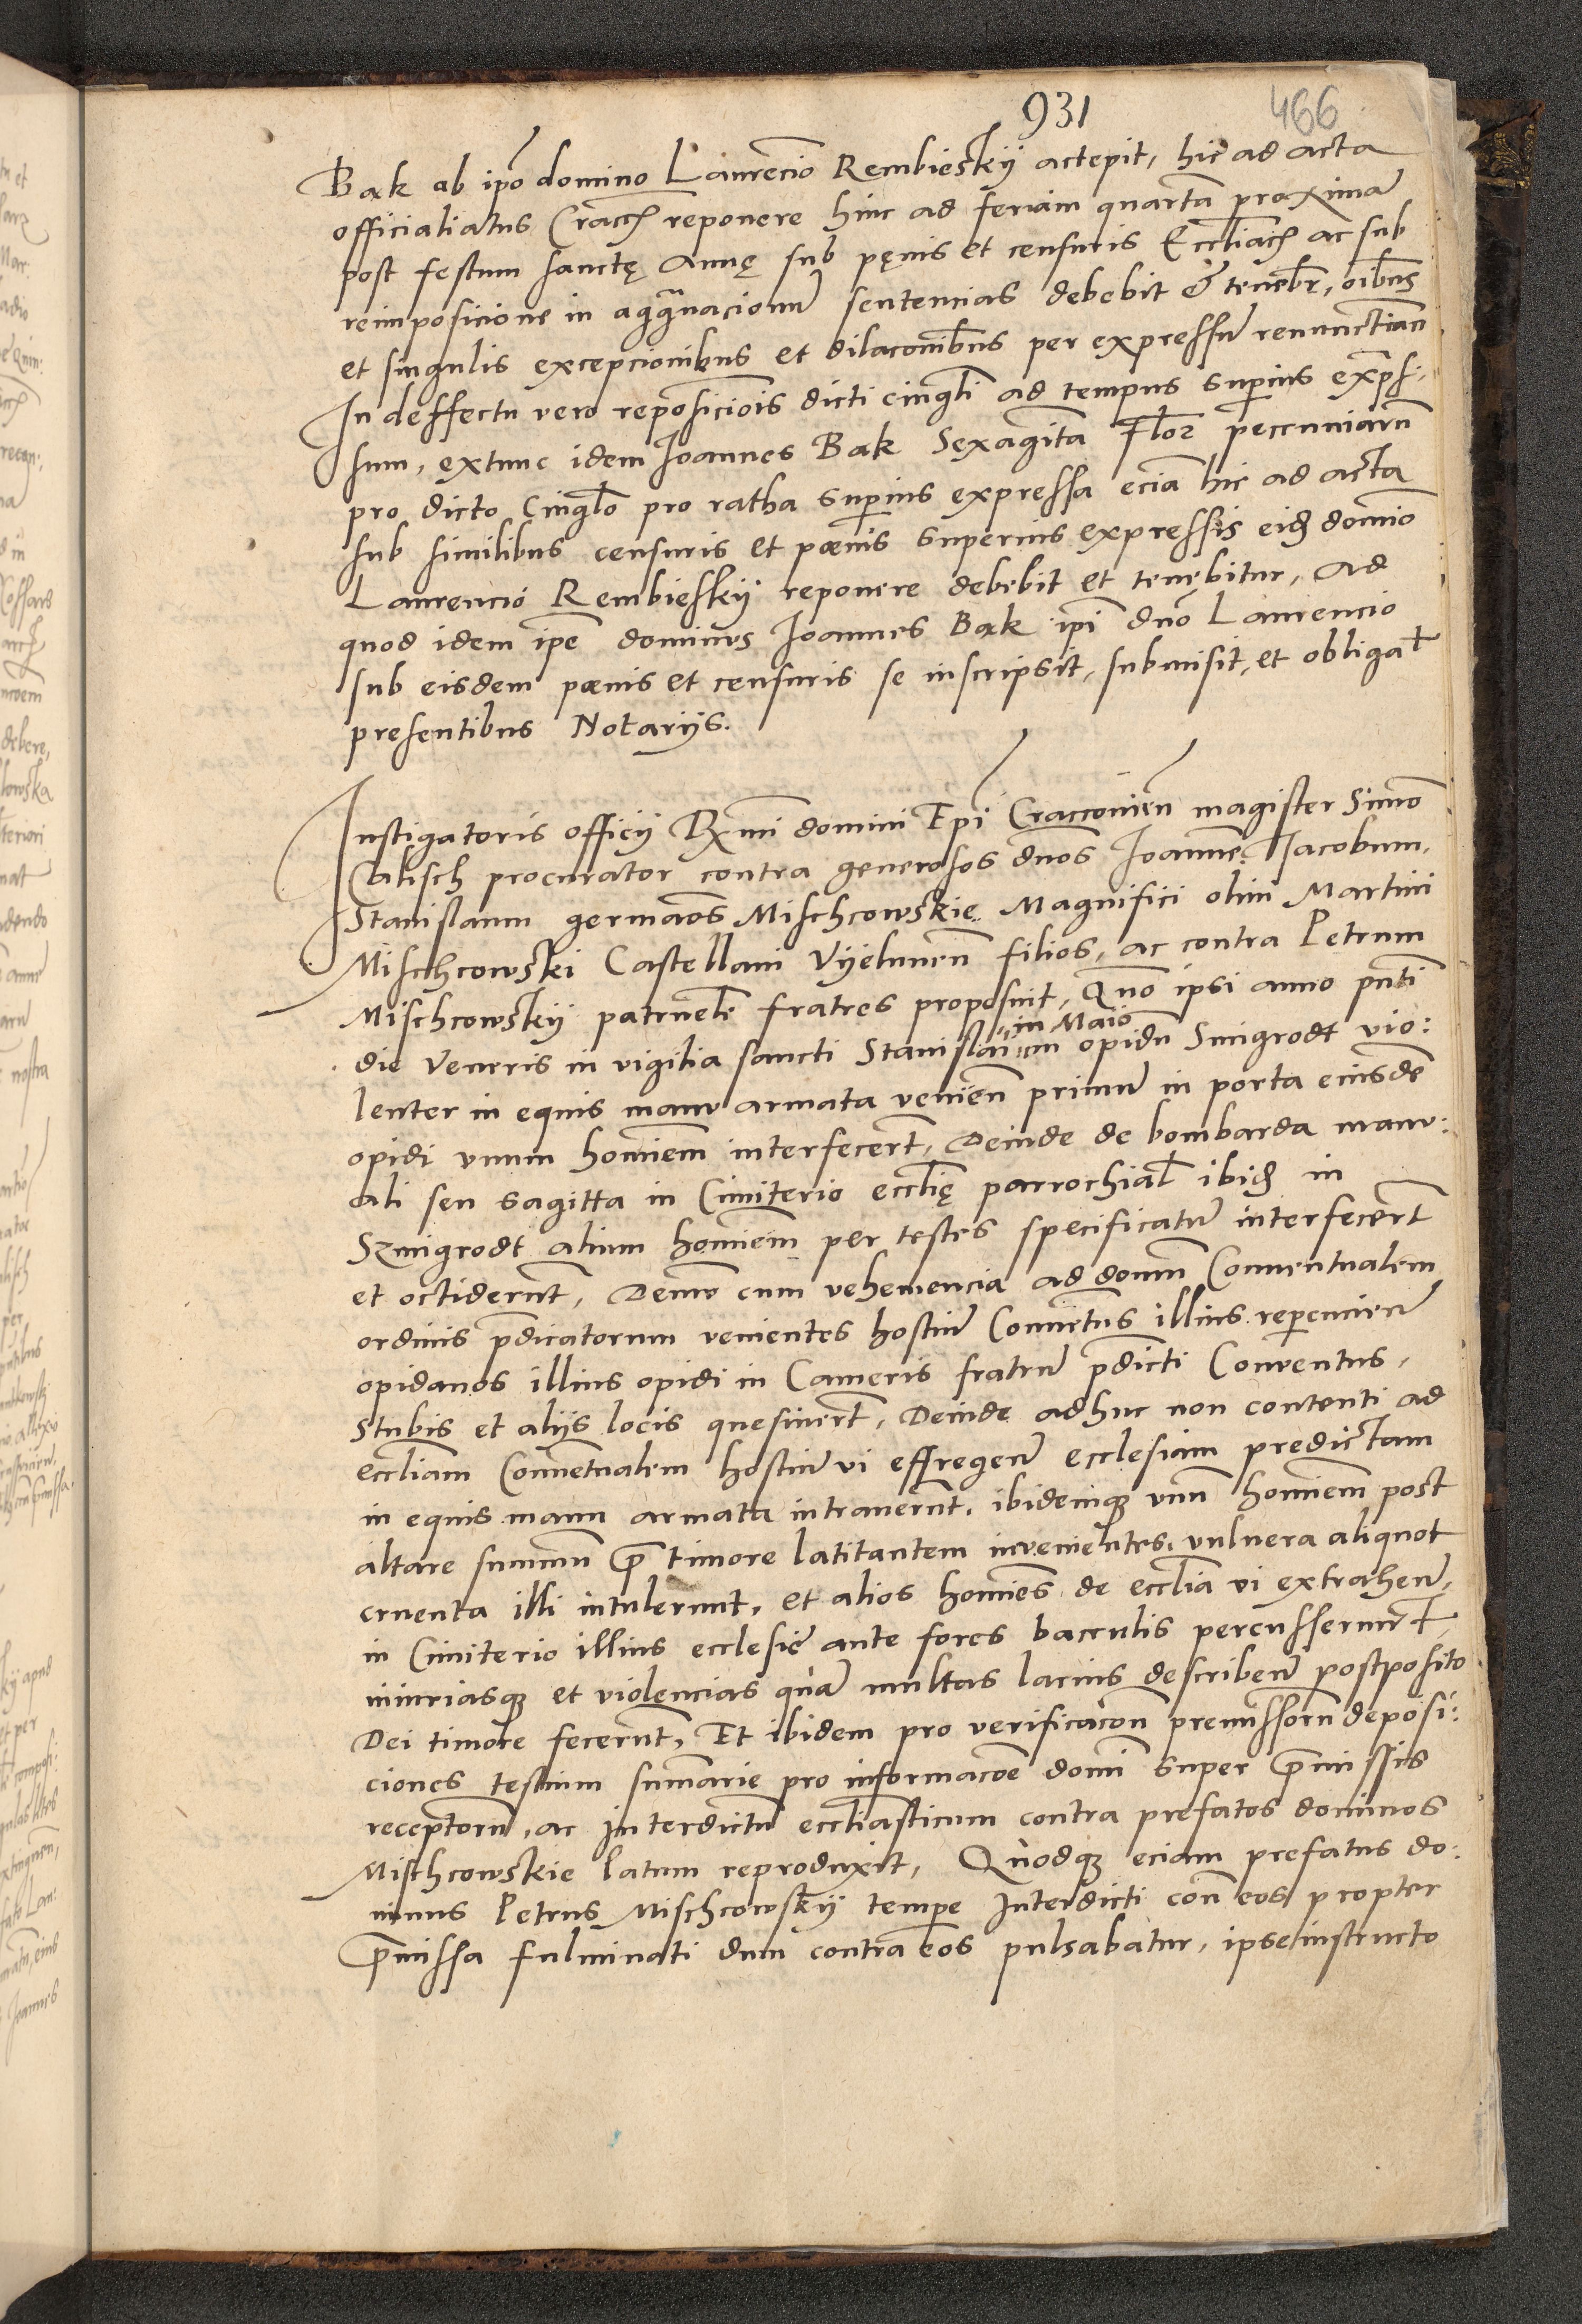 931 466
Bąk ab ip̄o domino Laurēcio Rembieskÿ accepit, hic ad acta
officialiatus Cracꝭ reponere hinc ad feriam quartā proximā
post festum sanctę Annę sub pęnis et censuris Eccl̄iacꝭ ac sub
reimposicione in aggrauacionū sentencias debebit & tenebr̄, oībus
et singulis excepcionibus et dilacōnibus per expressū renunctian̄
In deffectu vero reposiciōis dicti cingl̄i ad tempus sup̄ius exp̄s,
sum, extunc idem Joannes Bąk Sexagīta Flor̄ peccuniarū
pro dicto Cingl̄o pro ratha sup̄ius expressa eciā hic ad acta
sub similibus censuris et pœnis superius expressis eidꝭ domīo
Laurencio Rembieskÿ reponere debebit et tenebitur, ad
quod idem ip̄e dominus Joannes Bąk ip̄i dn̄o Laurencio
sub eisdem pœnis et censuris se inscripsit, submisit, et obligat̄
presentibus Notarijs.
Instigatoris officÿ Rx̄mi domini Ep̄i Cracouien̄ magister Simō
Calisch procurator contra generosos dn̄os Joannē. Jacobum.
Stanislaum germāos Mischcowskie Magnifici olim Martini
Mischcowski Castellani Vÿelunen̄ filios, ac contra Petrum
Mischcowskÿ patruel̄e fratres proposuit, Quō ipsi anno pn̄ti
die Veneris in vigilia sancti Stanislai in Maio in opidū Smigrodt vio:
lenter in equis manu armata venien̄ primū in porta eiusdē
opidi vnum homīem interfecer̄t, Deinde de bombarda manu:
ali seu sagitta in Cimiterio eccl̄ię parrochial̄ ibidꝭ in
Szmigrodt alium homīem per testes specificatū interfecer̄t
et occiderūt, Demū cum vehemencia ad domū Conuentualem
ordinis p̄dicatorum venientes hostiū Conuētus illius reperiencien̄
opidanos illius opidi in Cameris fratrū p̄dicti Conuentus,
Stubis et alijs locis quesiuer̄t, Deinde adhuc non contenti ad
eccl̄iam Conuētualem hostiū vi effregen̄ ecclesiam predictam
in equis manu armata intrauerūt. ibidemqꝫ vnū homīem post
altare summū p̄ timore latitantem inuenientes, vulnera aliquot
cruenta illi intulerunt, et alios homīes de eccl̄ia vi extrahen̄,
in Cimiterio illius ecclesie ante fores bacculis percusserunt,
iniuriasqꝫ et violencias quā multas lacius describen̄ postposito
Dei timore fecerūt, Et ibidem pro verificacōn premissorū deposi:
ciones testium sumārie pro informacōe domī super p̄missis
receptorū, ac Interdictū eccl̄iasticum contra prefatos dominos
Mischcowskie latum reproduxit, Quodqꝫ eciam prefatus do:
minus Petrus Mischcowskÿ temp̄e Interdicti con̄ eos propter
p̄missa fulminati dum contra eos pulsabatur, ipse instructo